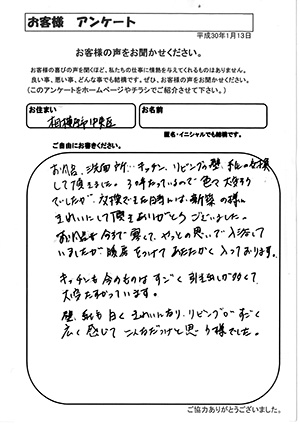 お客様 アンケート
平成30年1月13日
お客様の声をお聞かせください。
お客様の喜びの声を聞くほど、私たちの仕事に情熱を与えてくれるものはありません。
良い事、悪い事、どんな事でも結構です。ぜひ、お客様の声をお聞かせください。
(このアンケートをホームページやチラシでご紹介させて下さい。)
お住まい
お名前
相模原市中央区
匿名・イニシャルでも結構です。
ご自由にお書きください。
お風呂、洗面所、キッチン、リビングの壁、
して頂きました。30年たっているので色々大変
でしたが、交換できた時には、新築の様に
きれいにして頂きありがとうございました。
お風呂は今まで寒くて、やっとの思いで入って
いましたが暖房をつけてあたたかく入っております。
キッチンも今のものはすごく引き出しが多くて
大変たすかっています。
壁、も白くきれいになり、リビングがすごく
広く感じてこんなだっけと思う様でした。
ご協力ありがとうございました。